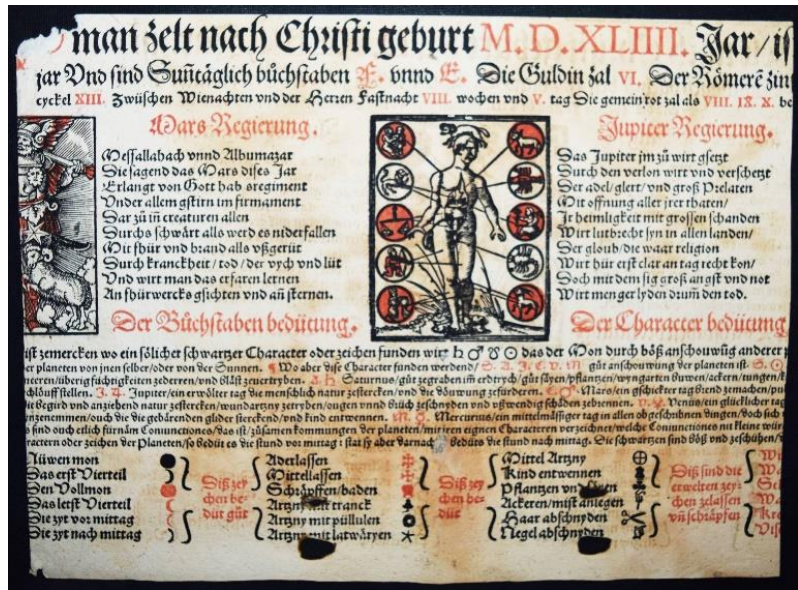 man zelt nach Christi geburt M.D.XLIIII. Jar / ist
jar Vnd sind Suñtäglich bůchstaben F. vnnd E. Die Guldin zal VI. Der Römerẽ zin
cyckel XIII. Zwüschen Wienachten vnd der Herren Fastnacht VIII. wochen vnd V. tag Die gemein rot zal als VIII. IX. X. be
Mars Regierung.
Messallahach vnnd Albumazar
Die sagend das Mars dises Jar
Erlangt von Gott hab s regiment
Vnder allem gstirn im firmament
Dar zů iñ creaturen allen
Durchs schwärt alls werd es niderfallen
Mit fhür vnd brand alls vßgerüt
Durch kranckheit / tod / der vych vnd lüt
Vnd wirt man das erfaren lernen
An fhürwercks gsichten vnd añ sternen.
Jupiter Regierung.
Das Jupiter jm zů wirt gsetzt
Durch den verlon wirt vnd verschetzt
Der adel / glert / vnd groß Prelaten
Mit offnung aller jrer thaten /
Jr heimligkeit mit grossen schanden
Wirt lutbrecht syn in allen landen /
Der gloub / die waar religion
Wirt hür erst clar an tag recht kon /
Doch mit dem sig groß angst vnd not
Wirt menger lyden drum̃ den tod.
Der Bůchstaben bedütung.
Der Character bedütung
ist zemercken wo ein sölicher schwartzer Character oder zeichen funden wirt ♄ ♂ ☋ ☉ das der Mon durch böß anschouwũg anderer p
er planeten von jnen selber / oder von der Sunnen. ¶ Wo aber dise Character funden werdend / S. A. J. C. V. M gůt anschouwung der planeten ist
Saturnus / gůt zegraben im erdtrych / gůt säyen / pflantzen / wyngarten buwen / ackern / tungen /
schlöuff stellen. J. ♃. Jupiter / ein erwölter tag die menschlich natur zestercken / vnd die döuwung zefürdern. Mars / ein gschickter tag
it begird vnd anziehend natur zestercken / wundartzny zetryben / ougen vnnd brüch zeschnyden vnd vßwendig schäden Venus / ein glücklicher tag
anzenemmen / ouch die die gebärenden glider sterckend / vnd kind entwennen. Mercurius / ein mittelmäßiger tag in allen obgeschribnen dingen / doch sich
s sind ouch etlich fürnäm Coniunctiones / das ist / zůsamen kommungen der planeten / mit jren eignen Characteren verzeichnet / welche Coniunctiones
ractern oder zeichen der Planeten / so bedüt es die stund vor mittag: stat sy aber darnach bedüts die stund nach mittag. Die schwartzen sind böß vnd zeschühen /
Nüwen mon
Das erst Vierteil
Den Vollmon
Das letst Vierteil
Die zyt vor mittag
Die zyt nach mittag
Diß zey
chen be
düt gůt
Aderlassen
Mittellassen
Schräpffen / baden
Artzny mit tranck
Artzny mit püllulen
Artzny mit latwäryen
Diß zey
chen be-
düt
Mittel Artzny
Kind entwennen
Pflantzen vnd
Ackeren / mist anlegen
Haar abschnyden
Negel abschnyden
Diß sind die
erwelten zey-
chen zelassen
vñ schräpfen